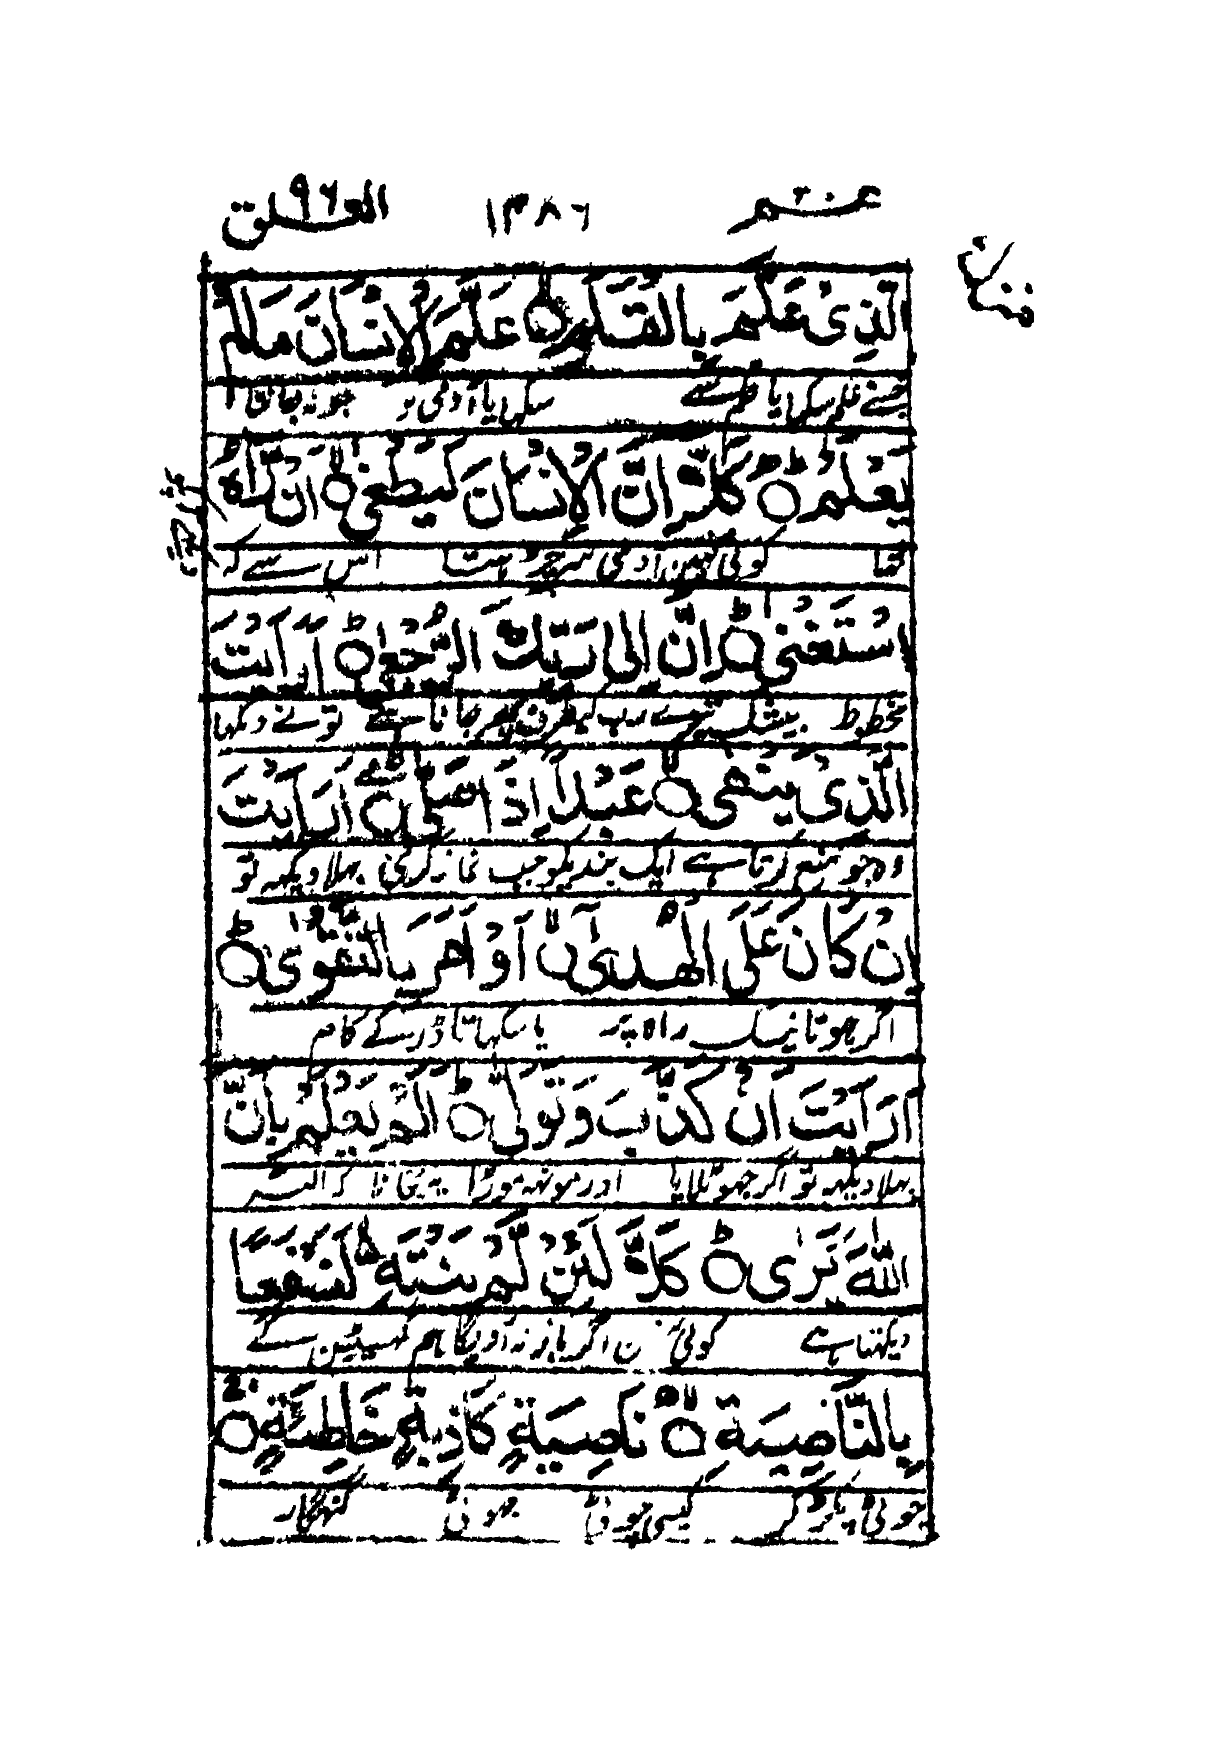 عـم ٣٠ ١٣٨٦ العلق ٩٦
الَّذِىْ عَلَّمَ بِالْقَلَمِ ۙ عَلَّمَ الْاِنْسَانَ مَا لَمْ
جسنے علم سکھایا قلم سے سکھایا آدمی کو جو نہ جانتا
يَعْلَمْ ؕ كَلَّاۤ اِنَّ الْاِنْسَانَ لَيَطْغٰىۤ ۙ اَنْ رَّاٰهُ
تھا کوئی نہیں آدمی سر چڑہتا اس سے کہ
اسْتَغْنٰى ؕ اِنَّ اِلٰى رَبِّكَ الرُّجْعٰى ؕ اَرَءَيْتَ
محظوظ بیشک تیرے رب کیطرف پھر جانا ہے تو نے دیکھا
الَّذِىْ يَنْهٰى ۙ عَبْدًا اِذَا صَلّٰى ؕ اَرَءَيْتَ
وہ جو منع کرتا ہے ایک بندیکو جب نماز کری بہلا دیکہہ تو
اِنْ كَانَ عَلَى الْهُدٰىۤ ۙ اَوْ اَمَرَ بِالتَّقْوٰى ؕ
اگر ہوتا نیک راہ پر یا سکہاتا ڈر کے کام
اَرَءَيْتَ اِنْ كَذَّبَ وَتَوَلّٰى ؕ اَلَمْ يَعْلَمْ بِاَنَّ
بہلا دیکہہ تو اگر جھوٹلایا اور مونہہ موڑا یہ نجانا کہ اللہ
اللّٰهَ يَرٰى ؕ كَلَّا لَئِنْ لَّمْ يَنْتَهِ ۙ لَنَسْفَعًۢا
دیکہتا ہے کوئی نہیں اگر باز نہ آویگا ہم گھسیٹینگے
بِالنَّاصِيَةِ ۙ نَاصِيَةٍ كَاذِبَةٍ خَاطِئَةٍ ۚ
چوٹی پکڑ کر کیسی چوٹی جھوٹی گنہگار